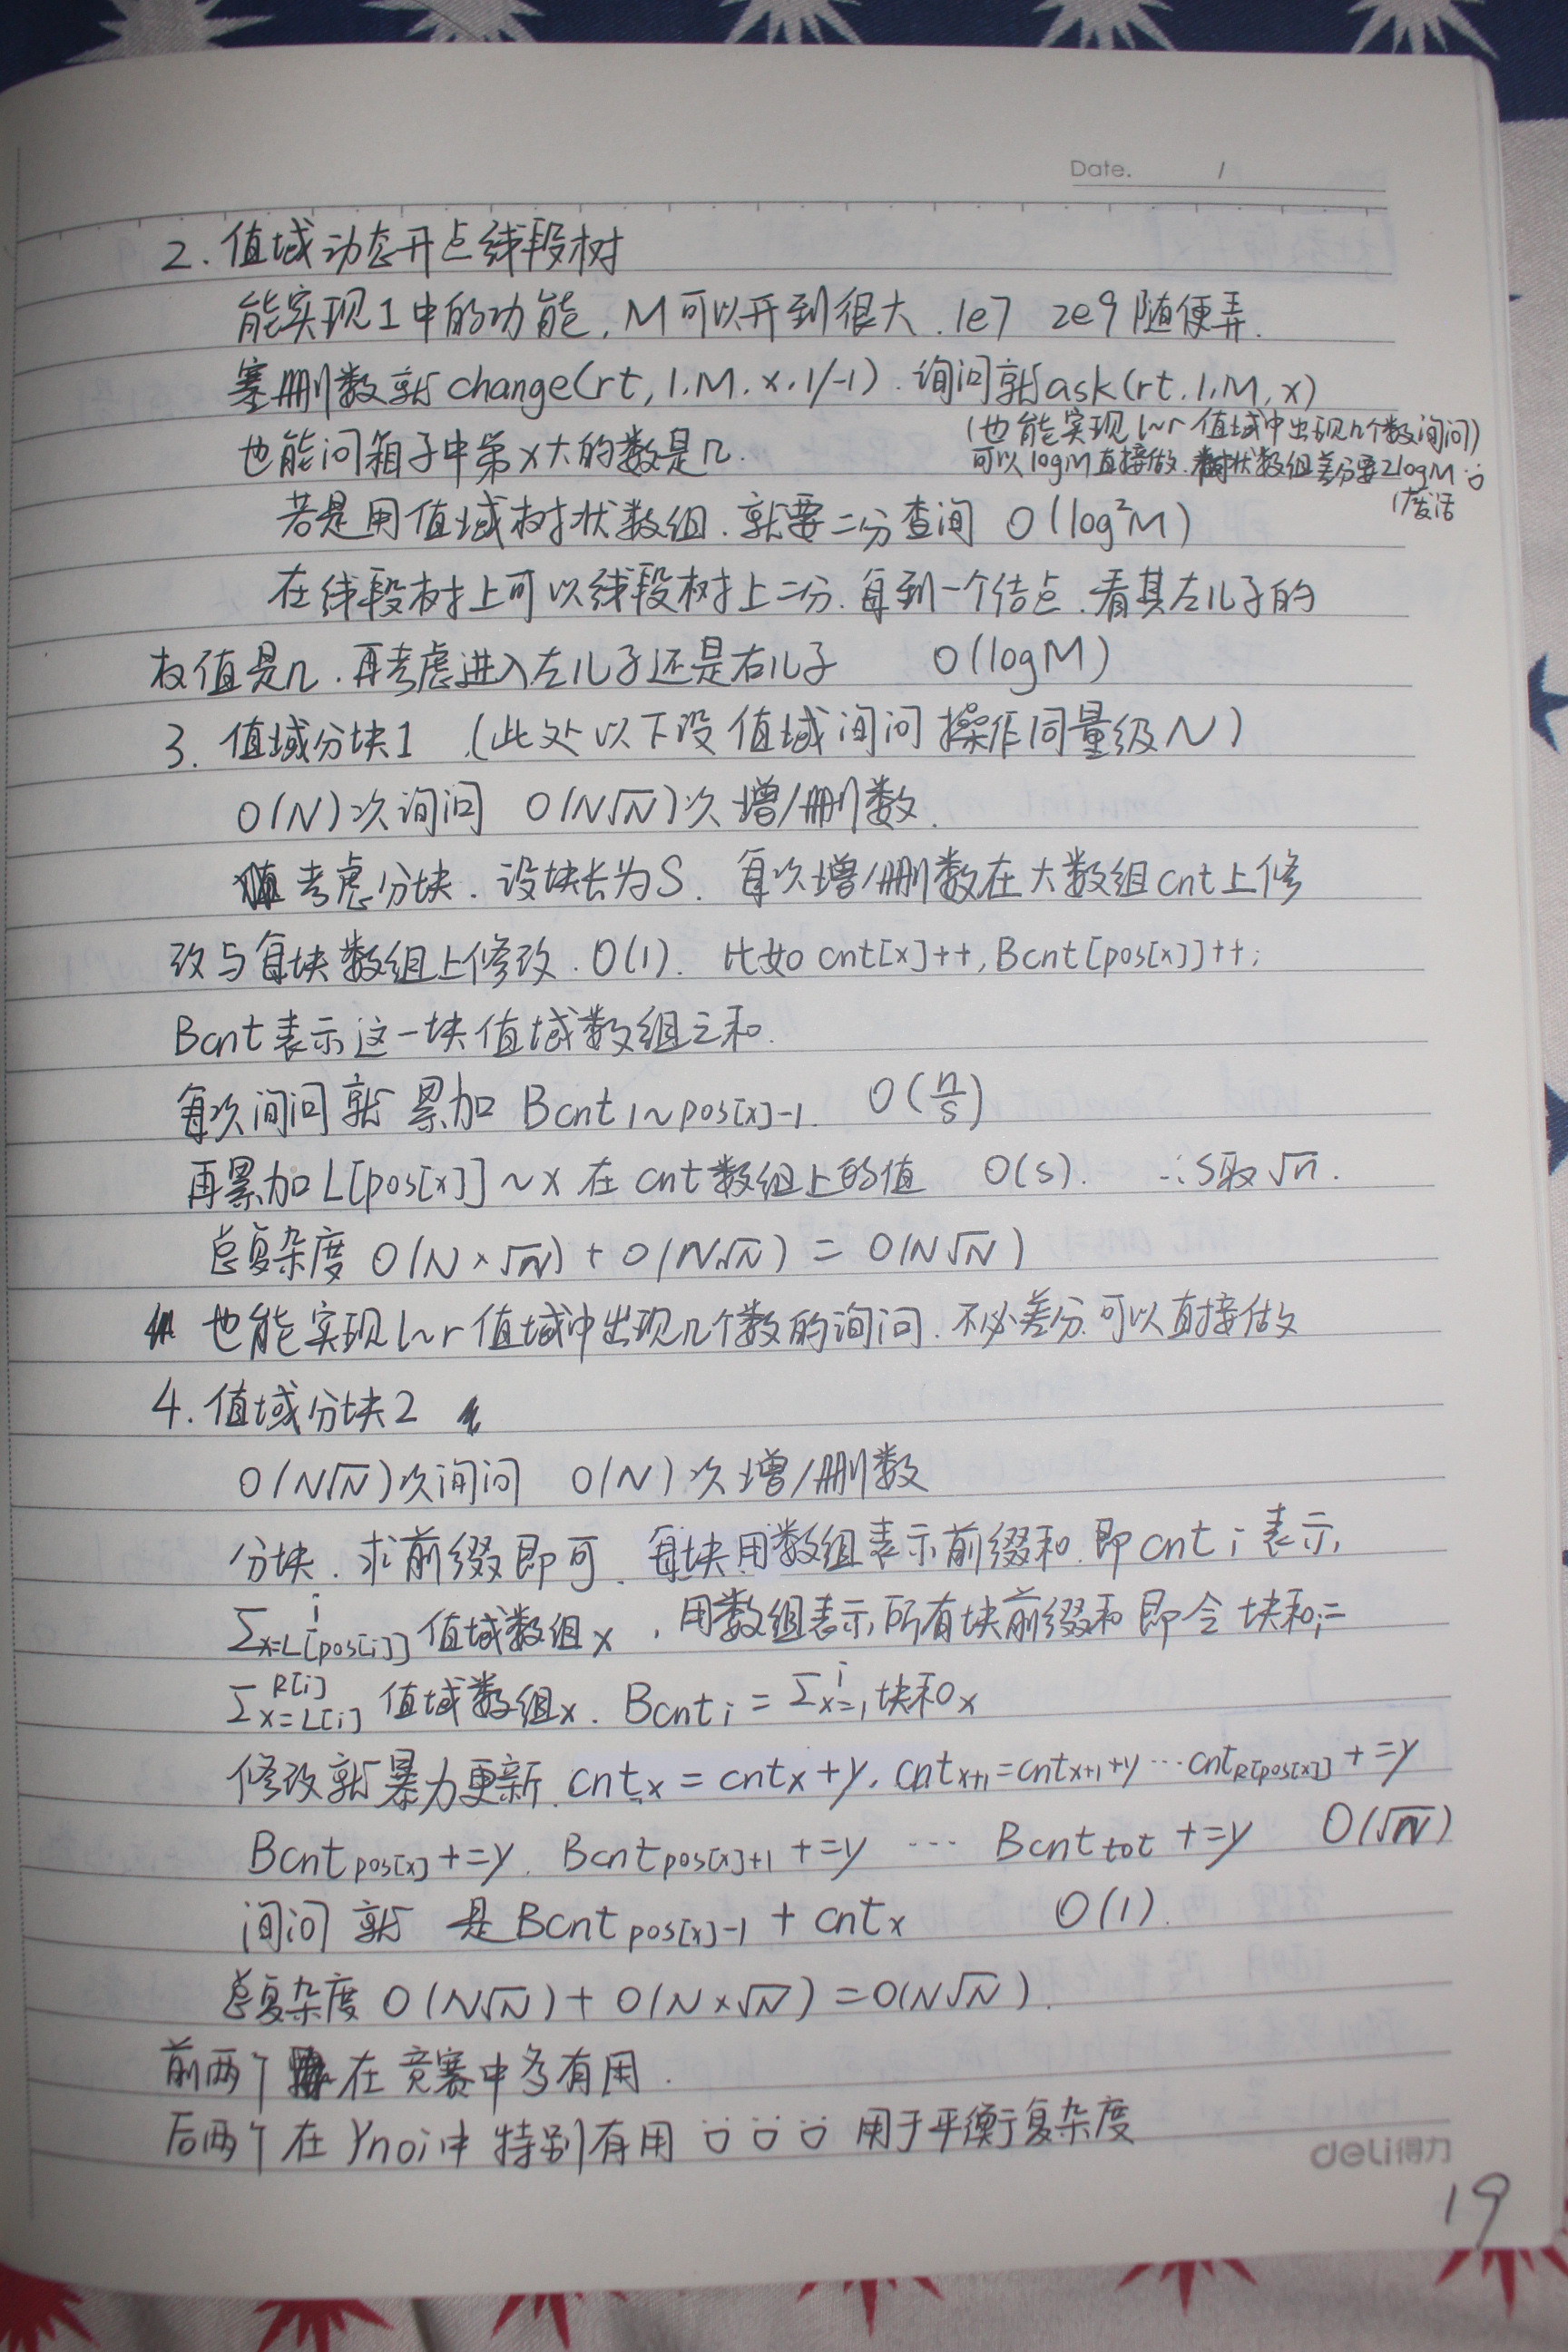 Date. /
2. 值域动态开点线段树
能实现1中的功能, M可以开到很大. 1e7 2e9 随便弄.
塞删数就change(rt, 1, M, x, 1/-1). 询问就ask(rt, 1, M, x)
(也能实现 l~r 值域中出现几个数询问)
也能问箱子中第x大的数是几.
可以logM直接做. 树状数组差分要2logM
废话
若是用值域树状数组. 就要二分查询 O(log²M)
在线段树上可以线段树上二分. 每到一个结点. 看其左儿子的
权值是几. 再考虑进入左儿子还是右儿子 O(logM)
3. 值域分块1 (此处以下设值域询问操作同量级N)
O(N)次询问 O(N√N)次增/删数.
考虑分块. 设块长为S. 每次增/删数在大数组cnt上修
改与每块数组上修改. O(1). 比如 cnt[x]++, Bcnt[pos[x]]++;
Bcnt表示这一块值域数组之和.
每次询问就累加 Bcnt 1~pos[x]-1. O(n/s)
再累加L[pos[x]]~x 在cnt数组上的值 O(s). ∴S取√n.
总复杂度 O(N×√N) + O(N√N) = O(N√N)
也能实现l~r值域中出现几个数的询问. 不必差分. 可以直接做
4. 值域分块2
O(N√N)次询问 O(N)次增/删数
分块. 求前缀即可. 每块用数组表示前缀和. 即cnt i 表示
Σ x=L[pos[i]] i 值域数组x, 用数组表示所有块前缀和 即令 块和i=
Σ x=L[i] R[i] 值域数组x. Bcnt i = Σ x=1 i 块和x
修改就暴力更新. cnt x = cnt x + y, cnt x+1 = cnt x+1 + y ⋯ cnt R[pos[x]] += y
Bcnt pos[x] += y. Bcnt pos[x]+1 += y ⋯ Bcnt tot += y O(√N)
询问就是 Bcnt pos[x]-1 + cnt x O(1).
总复杂度 O(N√N) + O(N×√N) = O(N√N).
前两个在竞赛中多有用.
后两个在Ynoi中特别有用 用于平衡复杂度
deli得力
19